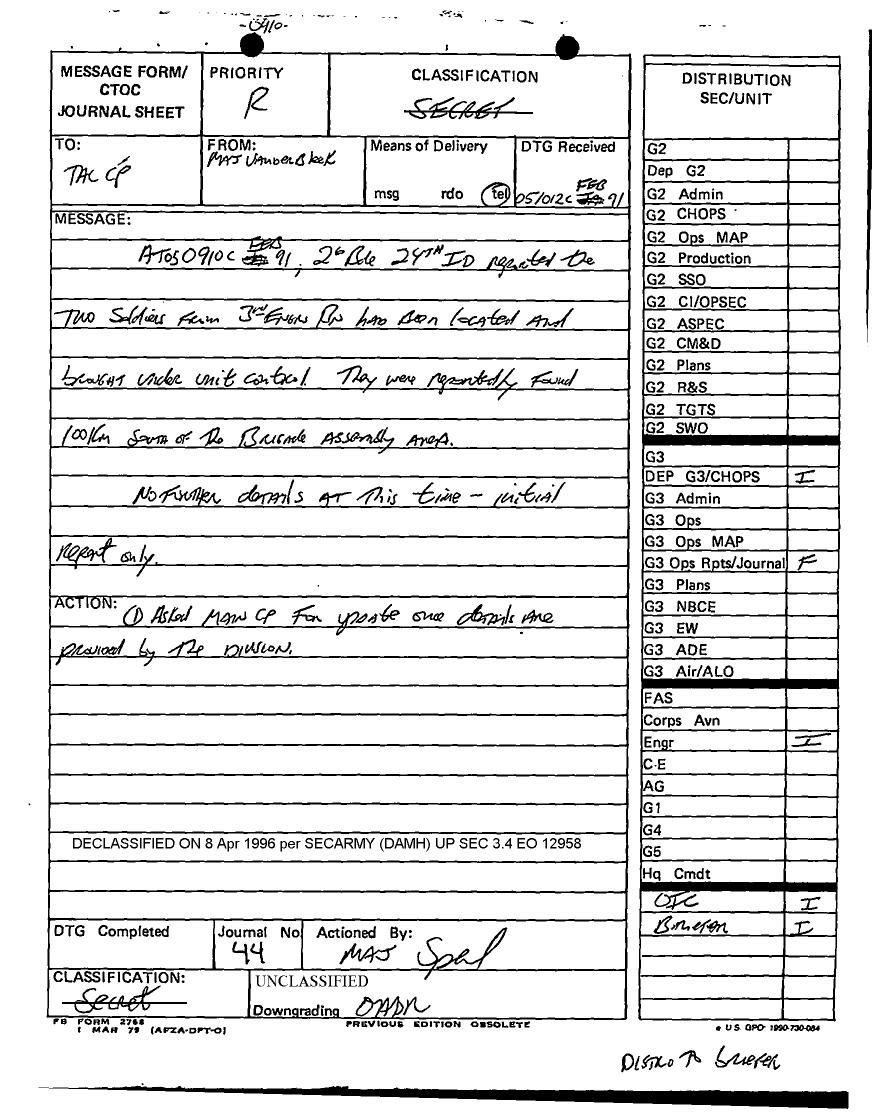 -0410-
MESSAGE FORM/
CTOC
JOURNAL SHEET
PRIORITY
R
CLASSIFICATION
SECRET
TO:
TAC CP
FROM:
MAJ VanderBleek
Means of Delivery
msg rdo tel
DTG Received
FEB
051012C 91
MESSAGE:
FEB
AT 050910C 91, 2d Bde 24TH ID reported the
TWO Soldiers From 3rd ENGR BN had Been located And
brought under unit control. They were reportedly Found
100Km South OF The Brigade Assembly Area.
No Further details AT This time - initial
report only.
ACTION: ① Asked MAIN CP For update once details Are
provided by The Division.
DECLASSIFIED ON 8 Apr 1996 per SECARMY (DAMH) UP SEC 3.4 EO 12958
DTG Completed
Journal No
44
Actioned By:
MAJ
CLASSIFICATION:
Secret
UNCLASSIFIED
Downgrading OADR
FB FORM 2766
1 MAR 79 (AFZA-DPT-O)
PREVIOUS EDITION OBSOLETE
DISTRIBUTION
SEC/UNIT
G2
Dep G2
G2 Admin
G2 CHOPS
G2 Ops MAP
G2 Production
G2 SSO
G2 CI/OPSEC
G2 ASPEC
G2 CM&D
G2 Plans
G2 R&S
G2 TGTS
G2 SWO
G3
DEP G3/CHOPS I
G3 Admin
G3 Ops
G3 Ops MAP
G3 Ops Rpts/Journal F
G3 Plans
G3 NBCE
G3 EW
G3 ADE
G3 Air/ALO
FAS
Corps Avn
Engr I
C-E
AG
G1
G4
G5
Hq Cmdt
OIC I
Briefer I
U.S. GPO: 1990-730-084
DISTRO TO BRIEFER